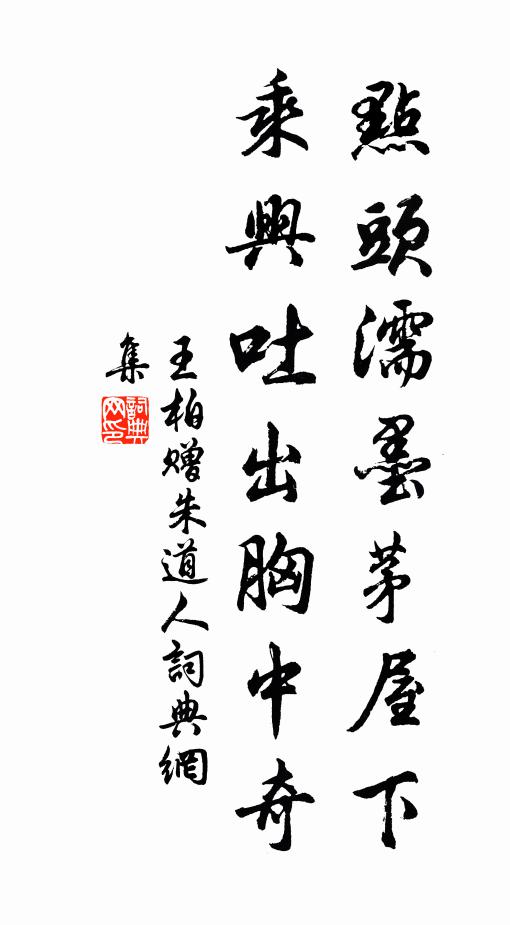 點頭濡墨茅屋下
乘興吐出胸中奇
王柏贈朱道人詞典網
集
詞典网印